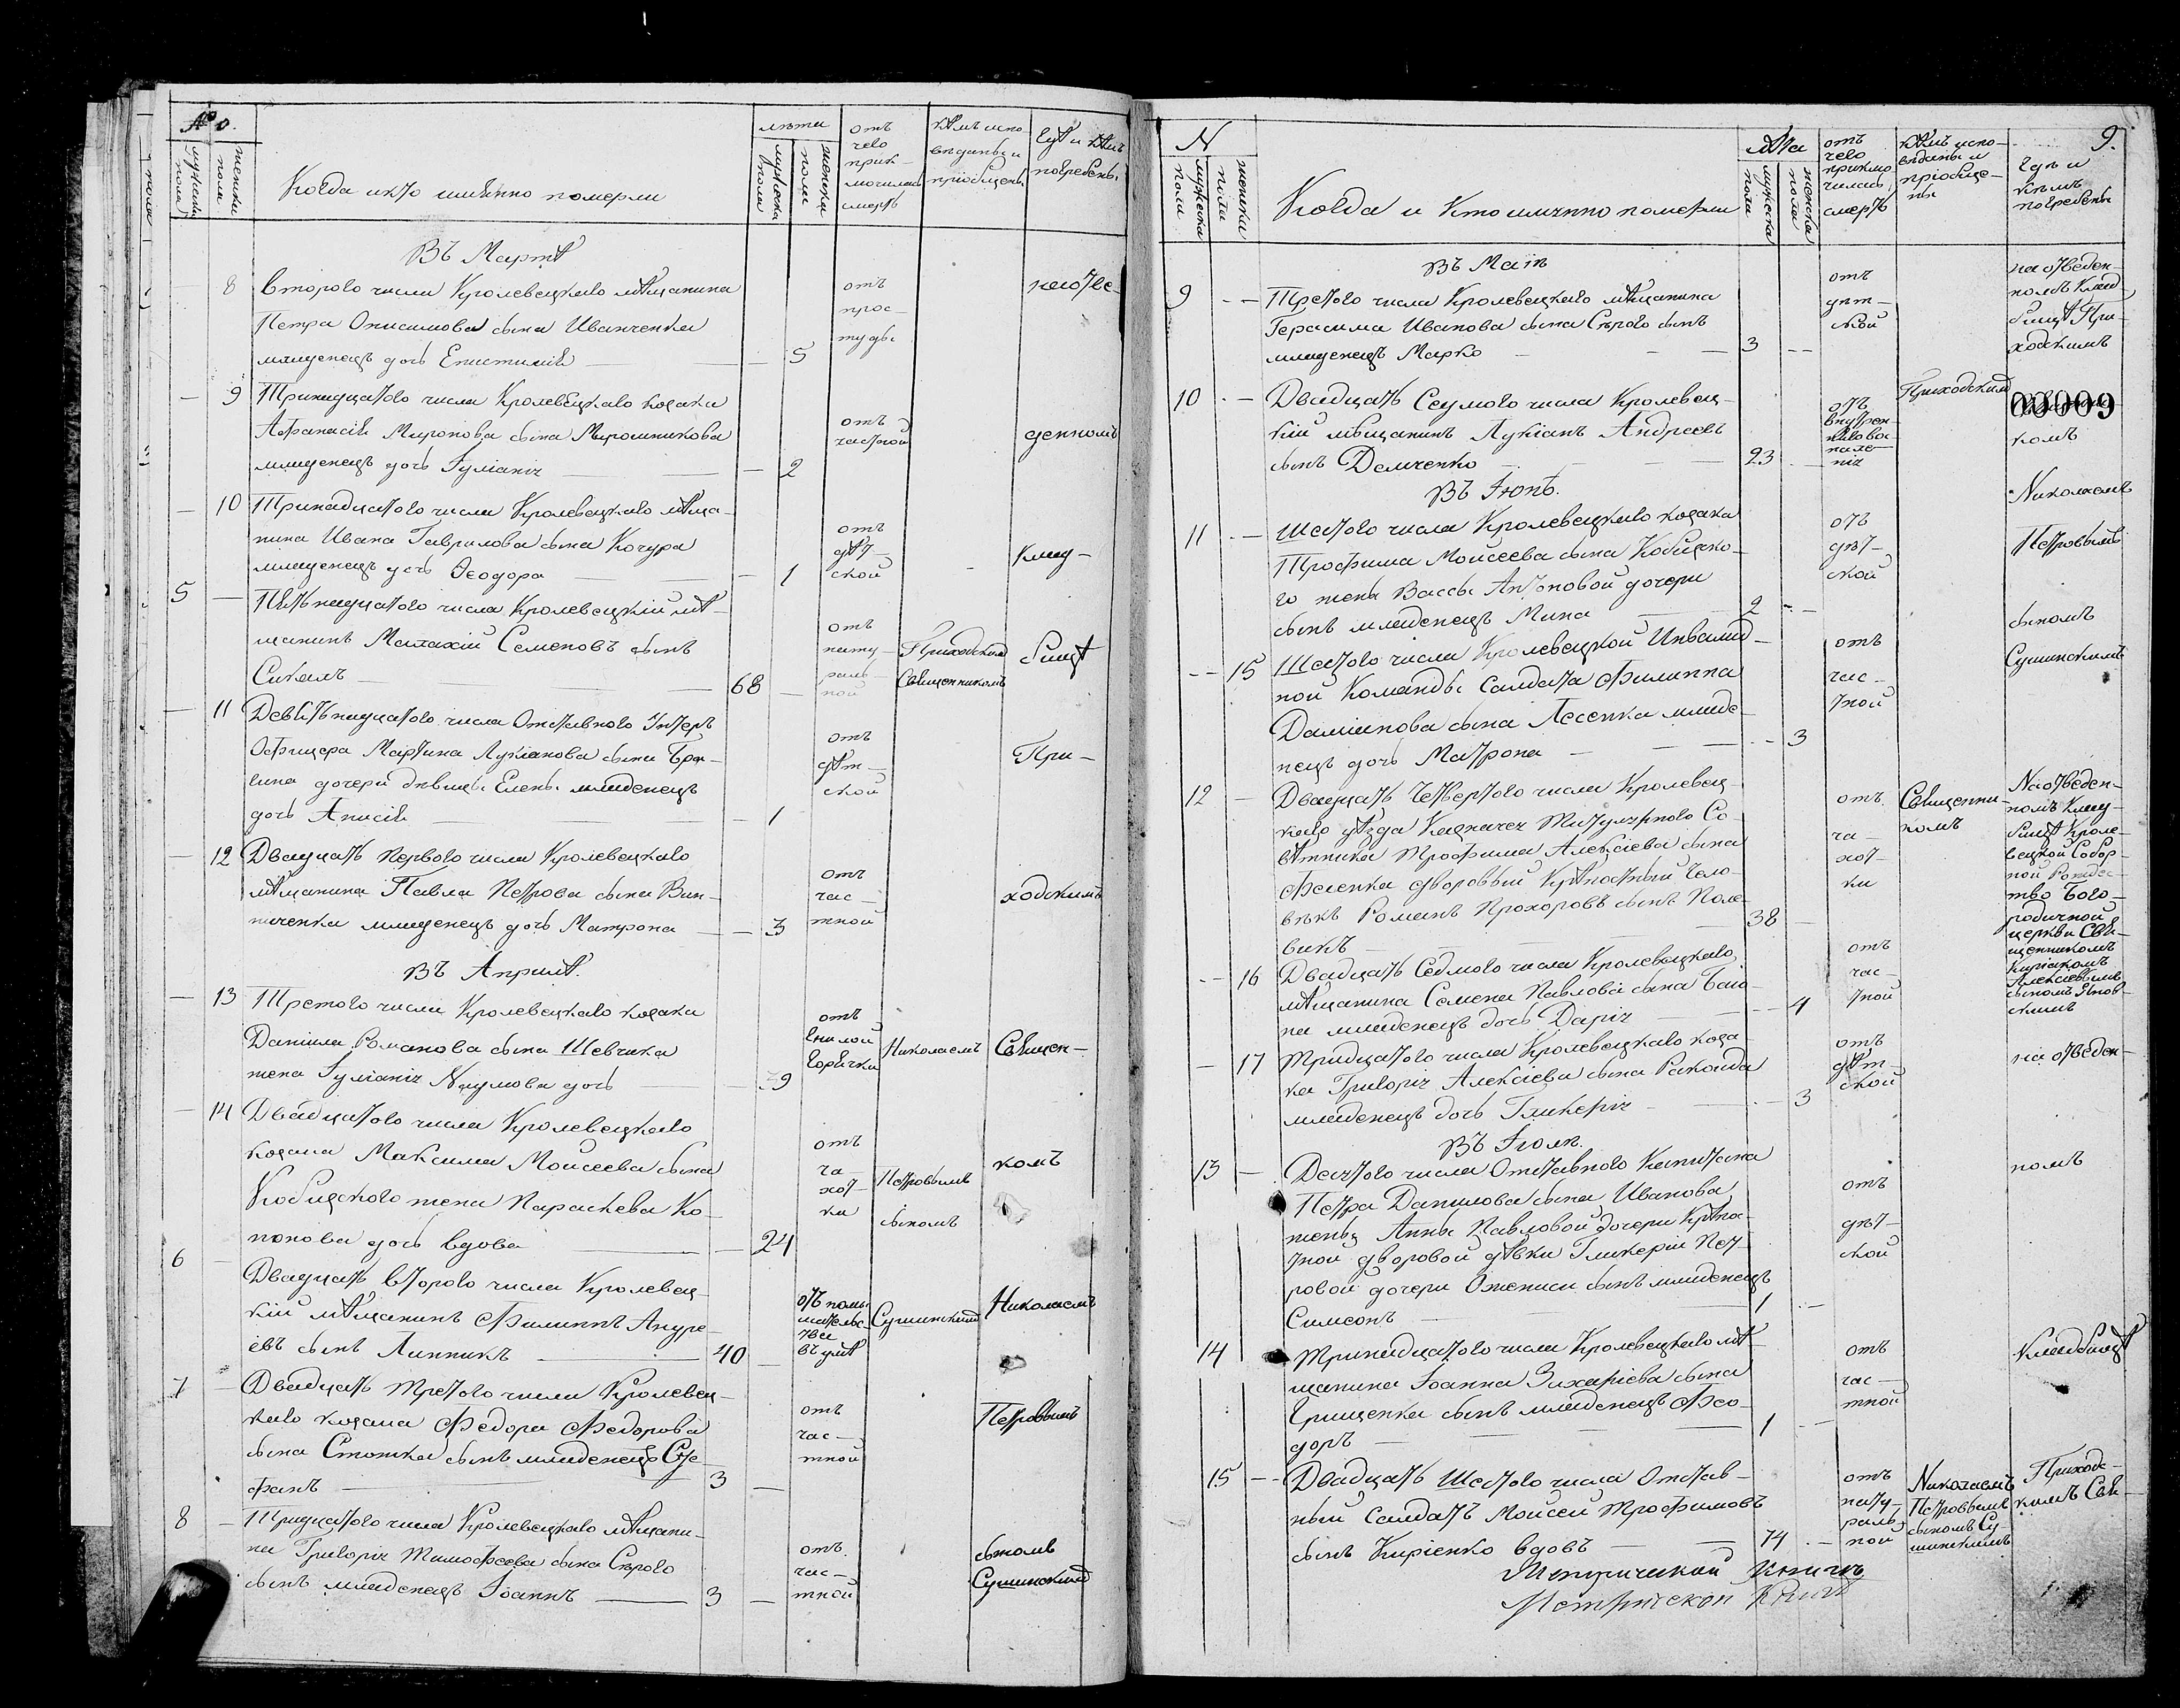 №
мужска пола
женска пола
Когда и кто имянно померли
лѣта
мужеска пола
женска пола
отъ
чего
прик-
мочилась
смерть
кѣмъ испо-
вѣданы и
пріобщены
Гдѣ и кѣмъ
погребены
Въ Мартѣ
8 Второго числа Кролевецкаго мѣщанина
Петра Онисимова сына Иванченка
младенецъ дочь Епистимія 5
отъ
прос-
туды
на отве-
9 Тринадцатого числа Кролевецкаго козака
Афанасія Миронова сына Мирошникова
младенецъ дочь Іуліанія 2
отъ
частной
денномъ
10 Тринадцатого числа Кролевецкаго мѣща-
нина Ивана Гаврилова сына Кочура
младенецъ дочь Ѳеодора 1
отъ
дѣт-
ской
клад-
5 Пятьнадцатого числа Кролевецкій мѣ-
щанинъ Малахій Семеновъ сынъ
Сикалъ 68
отъ
нату-
раль-
ной
Приходскимъ
Священникомъ
бищѣ
11 Девятьнадцатого числа Отставного Унтеръ
Офицера Мартина Лукіанова сына Бра-
гина дочери дѣвицы Елены младенецъ
дочь Анисія 1
отъ
дѣт-
ской
При-
12 Двадцать Перваго числа Кролевецкаго
мѣщанина Павла Петрова сына Вин-
ниченка младенецъ дочь Матрона 3
отъ
час-
тной
ходскимъ
Въ Априлѣ.
13 Третого числа Кролевецкаго козака
Даніила Романова сына Шевчика
жена Іуліанія Наумова дочь 39
отъ
гнилой
горячки
Николаемъ
Священ-
14 Двадцатого числа Кролевецкаго
козака Максима Моисеева сына
Кобицкого жена Параскева Ко-
нонова дочь вдова 24
отъ
ча-
хот-
ки
Петровымъ
сыномъ
комъ
6 Двадцать второго числа Кролевец-
кій мѣщанинъ Филиппъ Андре-
евъ сынъ Линникъ 40
отъ помѣ-
шательс-
тва
въ умѣ
Сушинскимъ
Николаемъ
7 Двадцать третого числа Кролевец-
каго козака Федора Федорова
сына Стожка сынъ младенецъ Сте-
фанъ 3
отъ
час-
тной
Петровымъ
8 Тридцатого числа Кролевецкаго мѣщани-
на Григорія Тимофеева сына Сѣрого
сынъ младенецъ Іоаннъ 3
отъ
час-
тной
сыномъ
Сушинскимъ
9.
N
мужеска пола
женска пола
Когда и Кто имянно померли
лѣта
мужеска пола
женска пола
отъ
чего
приклю-
чилась
смерть
кѣмъ испо-
вѣданы и
пріобще-
ны
Гдѣ и
кѣмъ
погребены
Въ Маіѣ
9 Третого числа Кролевецкаго мѣщанина
Герасима Иванова сына Сѣрого сынъ
младенецъ Марко 3
отъ
дѣт-
ской
на отведен-
номъ клад-
бищѣ При-
ходскимъ
10 Двадцать Седмого числа Кролевец-
кій мѣщанинъ Лукіанъ Андреевъ
сынъ Демченко 23
отъ
внутрен-
няго во-
пале-
нія
Приходскимъ
00009
комъ
Въ Іюнѣ.
Николаемъ
11 Шестого числа Кролевецкаго козака
Трофима Моисеева сына Кобицко-
го жены Вассы Антоновой дочери
сынъ младенецъ Мина 2
отъ
дѣт-
ской
Петровымъ
сыномъ
15 Шестого числа Кролевецкой Инвалид-
ной Команды Салдата Филиппа
Даміянова сына Лесенка младе-
нецъ дочь Матрона 3
отъ
час-
тной
Сушинскимъ
12 Двадцать Четвертого числа Кролевец-
каго уѣзда Казначея Титулярного Со-
вѣтника Трофима Алексіева сына
Фсенка дворовый Крѣпостный Чело-
вѣкъ Романъ Прохоровъ сынъ Поле-
викъ 38
отъ
ча-
хот-
ки
Священни-
комъ
На отведен-
номъ клад-
бищѣ Кроле-
вецкой Собор-
ной Рождес-
тво Бого-
родичной
церкви Свя-
щенникомъ
Киріакомъ
Алексіевымъ
сыномъ Янов-
скимъ
16 Двадцать Седмого числа Кролевецкаго
мѣщанина Семена Павлова сына
младенецъ дочь Дарія 4
отъ
час-
тной
17 Тридцатого числа Кролевецкаго коза-
ка Григорія Алексіева сына
младенецъ дочь Гликерія 3
отъ
дѣт-
ской
на отведен-
Въ Іюлѣ.
13 Десятого числа Отставного Капитана
Петра Данилова сына Иванова
жены Анны Павловой дочери Крѣпо-
тной дворовой дѣвки Гликеріи Пет-
ровой дочери сынъ младенецъ
Симеонъ 1
отъ
дѣт-
ской
номъ
14 Тринадцатого числа Кролевецкаго мѣ-
щанина Іоанна Захаріева сына
Грищенка сынъ младенецъ Фео-
доръ 1
отъ
час-
тной
Кладбищѣ
15 Двадцать Шестого числа Отстав-
ный Салдатъ Моисей Трофимовъ
сынъ Киріенко вдовъ 74
отъ
нату-
раль-
ной
Николаемъ
Петровымъ
сыномъ Су-
шинскимъ
Приходс-
кимъ Свя-
Метрической Книгѣ
Метрической Книгѣ